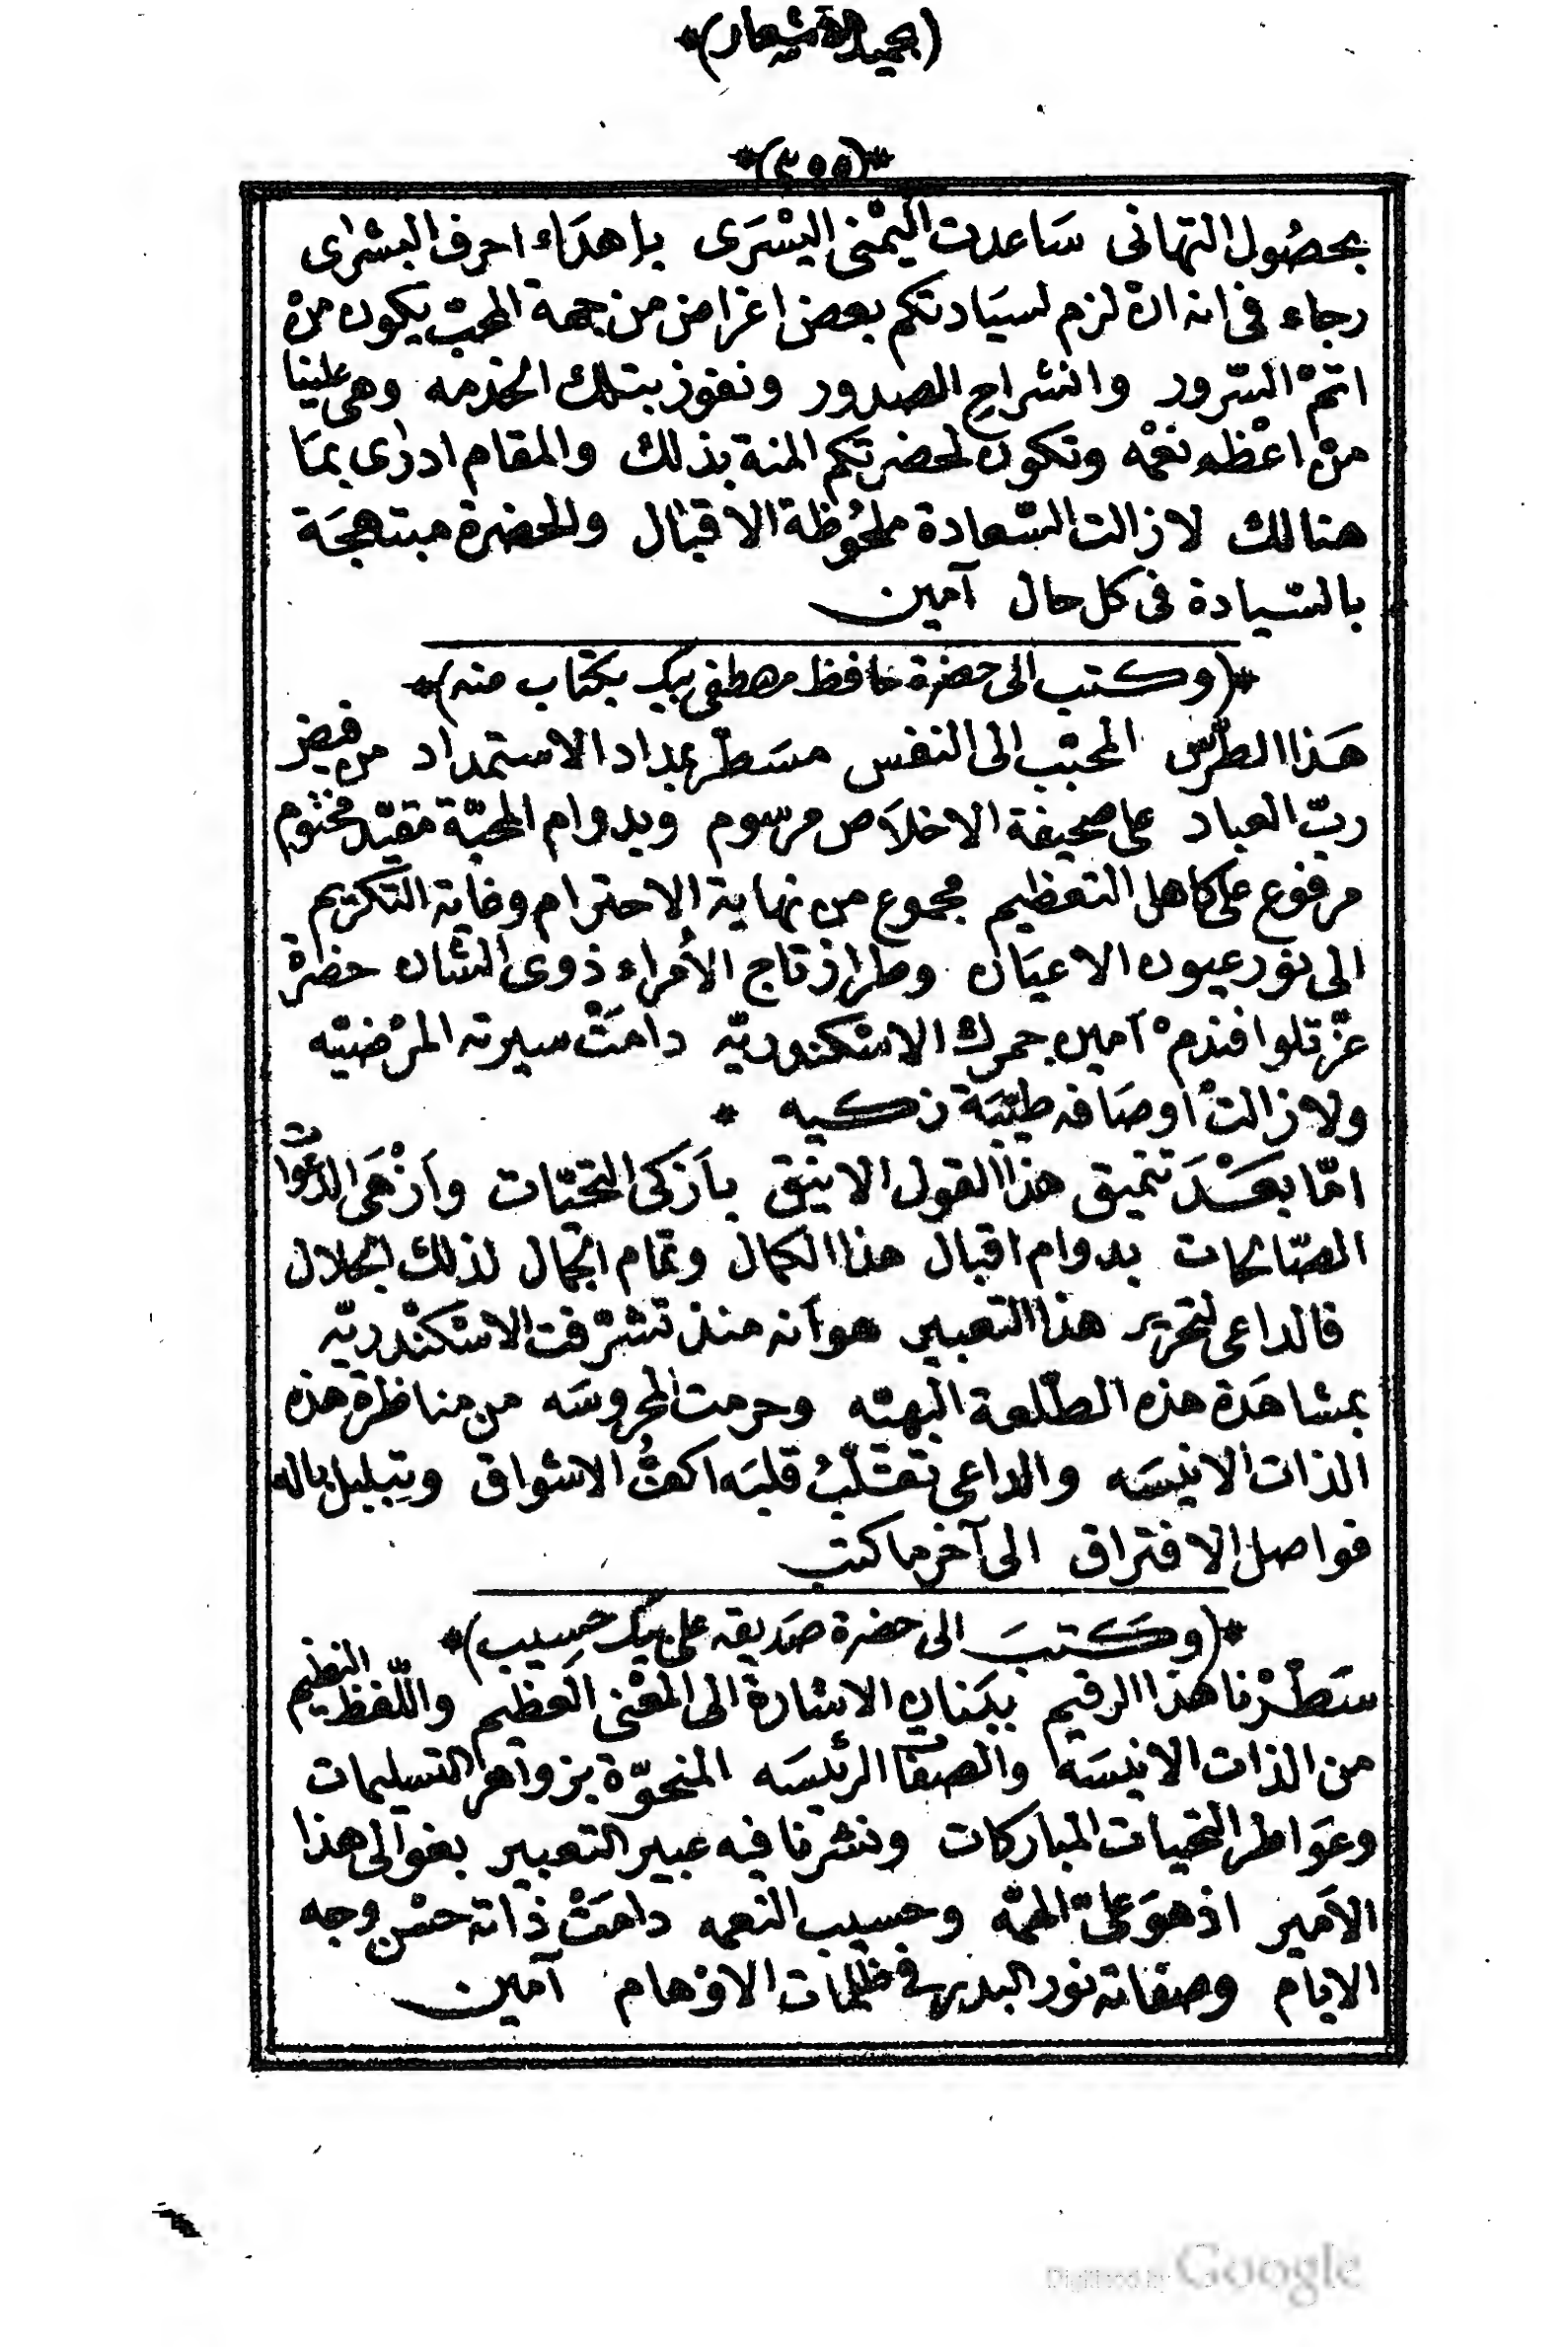 (بحميد الاشعار)*
*(٣٥٥)*
بحصُول التهانى سَاعدت اليمْنى اليسْرَى بإهدَاء احرف البشرٰى
رجاء فى انه انْ لزم لسيَادتكم بعض اغراض من جهة المحبّ يكون منْ
اتمّ السّرور وانشراح الصدور ونفوز بتلك الخدْمه وهى علينا
منْ اعْظم نعْمه وتكون لحضرتكم المنة بذلك والمقام ادرٰى بمَا
هنالك لا زالت السّعادة ملحُوظة الاقبٰال والحضرة مبتهجَة
بالسّيادة فى كل حال آمين
*(وكتب الى حضرة حافظ مصطفى بيك بكتاب منه)*
هَذا الطّرس المحبّب الى النفس مسَطّر بمداد الاستمداد من فيض
ربّ العباد على صحيفة الاخلاَص مرسوم وبدوام المحبّة مقيّد مختوم
مرفوع على كاهل التعظيم مجموع من نهاية الاحترام وغاية التّكريم
الى نور عيون الاعيَان وطراز تاج الأمراء ذوى الشان حضرةْ
عزّتلو افندمْ آمين جمرك الاسْكندريّه دامَتْ سيرته المرْضيّه
ولا زالتْ اوصَافه طيّبَة زكيه *
امّا بعَـْدَ تنميق هذا القول الانيق بأزكى التحيّات وأزْهَى الدّعوات
الصّالحات بدوام اقبال هذا الكمال وتمام الجمال لذلك الجلال
فالداعى لتحرير هذا التعبير هو أنه منذ تشرّفت الاسْكنْدريّه
بمشاهَدة هذه الطّلعة البهيّه وحرمت المحروسَه من مناظرة هذه
الذات الانيسَه والداعى تقَلّبُ قلبَه اكفُّ الاشواق ويبلبل باله
فواصل الافتراق الى آخر ما كتب
*(وكَتبَ الى حضرة صَديقه على بيك حسيب)*
سَطّرْنا هٰذا الرقيم ببَنان الاشارة الى المعْنى العَظيم واللّفظ النظيم
من الذات الانيسَه والصفات الرئيسَه المنحوّة بزواهر التسليمات
وعوَاطر التحيات المباركات ونشرنا فيه عبير التعبير بغوالى هذا
الأمير اذ هوَ علىّ الهمّه وحسيب النعمه دامَتْ ذاته حسْن وجه
الايام وصفاته نور البدر فى ظلمات الاوْهام آمين